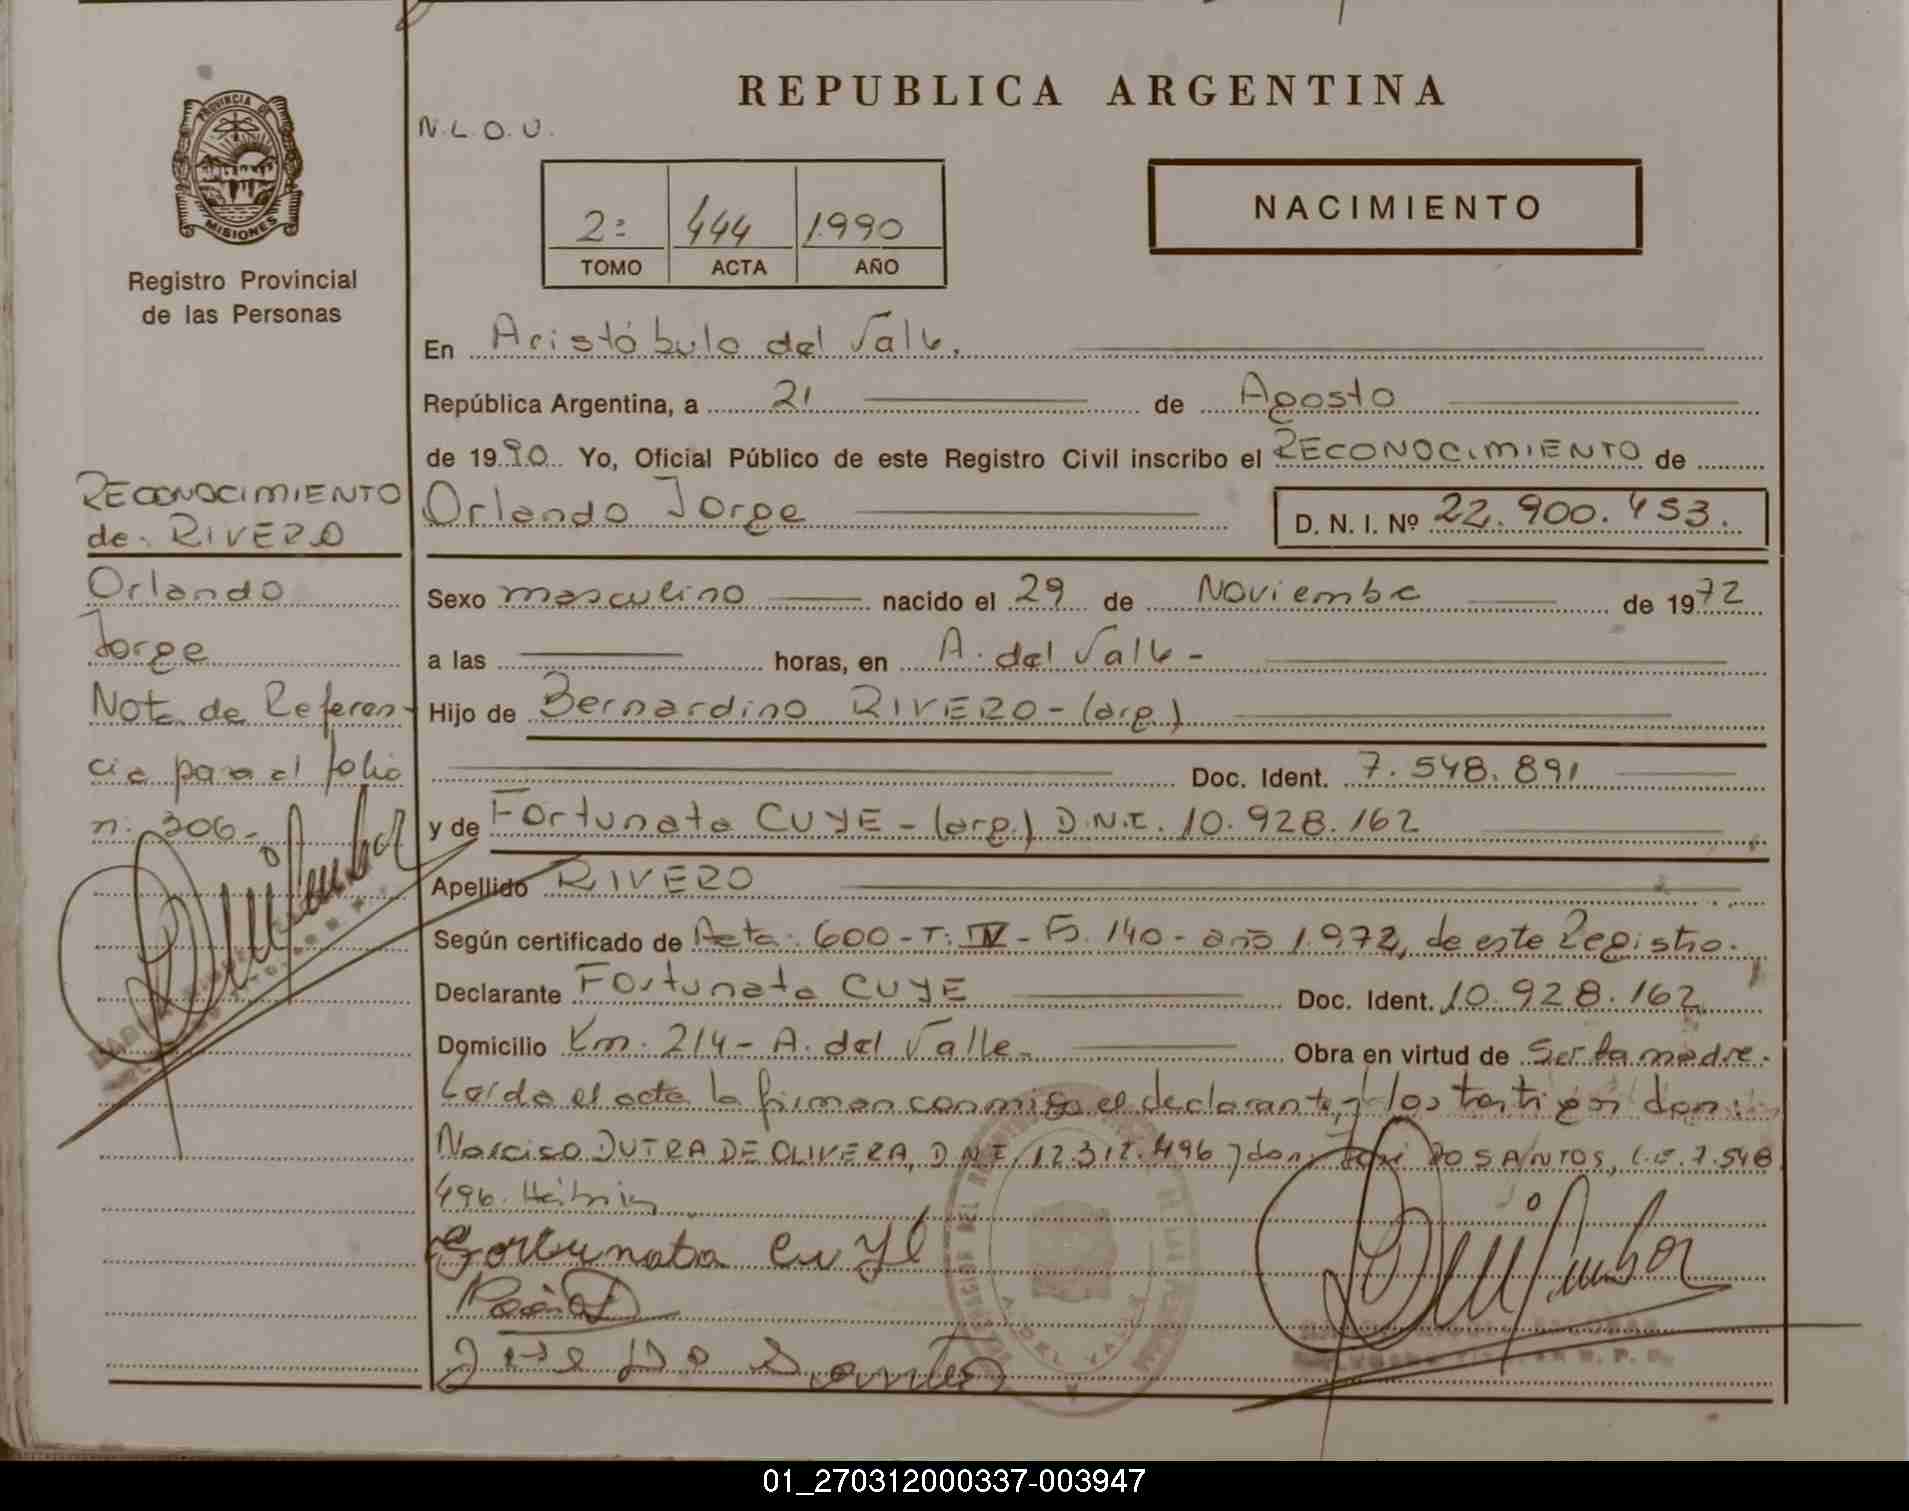 PROVINCIA DE
MISIONES
Registro Provincial
de las Personas
RECONOCIMIENTO
de. RIVERO
Orlando
Jorge
Nota de Referen-
cia para el folio
n: 306-
REPUBLICA ARGENTINA
N.L.O.U.
NACIMIENTO
2: 444 1990
TOMO ACTA AÑO
En Aristóbulo del Valle.
República Argentina, a 21 de Agosto
de 1990 Yo, Oficial Público de este Registro Civil inscribo el RECONOCIMIENTO de
Orlando Jorge D. N. I. Nº 22.900.453.
Sexo masculino nacido el 29 de Noviembre de 1972
a las horas, en A. del Valle -
Hijo de Bernardino RIVERO - (arg.)
Doc. Ident. 7.548.891
y de Fortunata CUYE - (arg.) D.N.I. 10.928.162
Apellido RIVERO
Según certificado de Acta: 600 - T: IV - Fo. 140 - año 1.972, de este Registro.
Declarante Fortunata CUYE Doc. Ident. 10.928.162
Domicilio Km. 214 - A. del Valle - Obra en virtud de Ser la madre.
Leída el acta la firman conmigo el declarante y los testigos don:
Narciso DUTRA DE OLIVERA, D.N.I. 12.312.496 y don: José DO SANTOS, L.E. 7.548
496.
Fortunata Cuye
José Do Santos
A. DEL VALLE
01_270312000337-003947